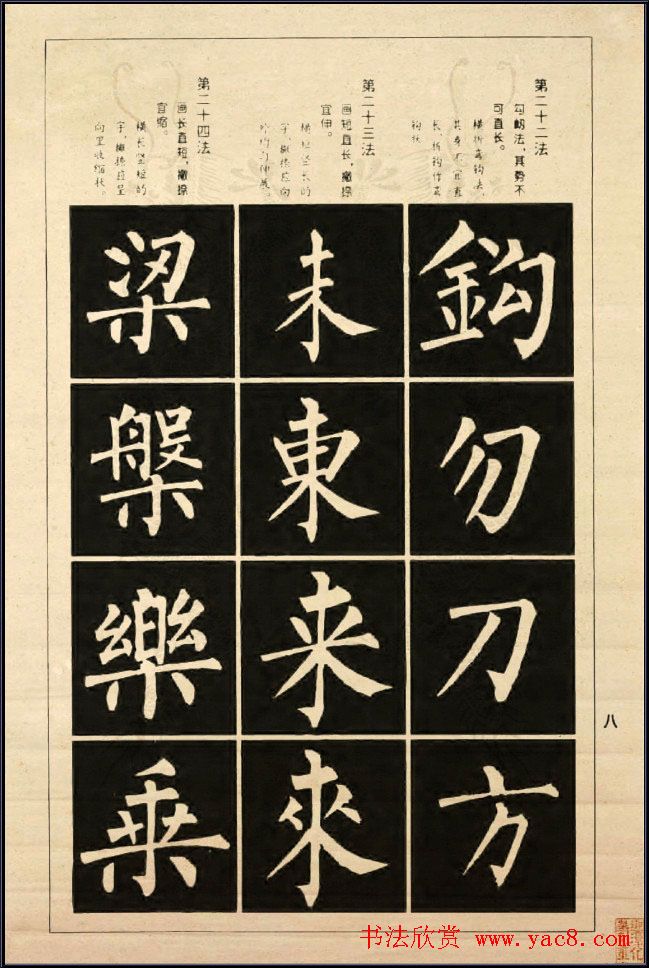 第二十二法
勾努法，其势不
可直长。
长，折钩作弯
钩状
鈎
勿
刀
方
第二十三法
画短直长，撇捺
宜伸。
横短竖长的
字，撇捺应向
外均匀伸展。
未
東
来
來
第二十四法
画长直短，撇捺
宜缩。
横长竖短的
字，撇捺应呈
向里收缩状。
梁
槃
樂
乗
八
书法欣赏 www.yac8.com